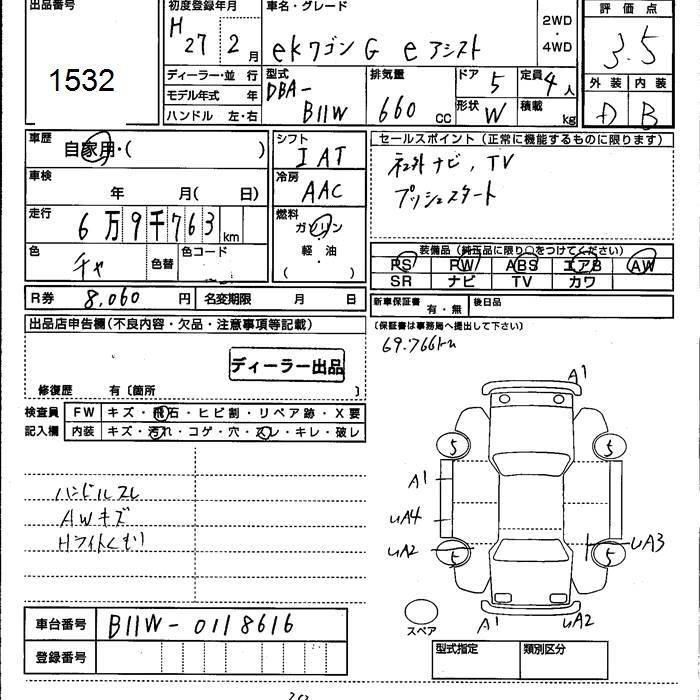 出品番号 初度登録年月 車名・グレード 評価点
1532 H 27 2月 ekワゴン G eアシスト 2WD・4WD 3.5
ディーラー・並行 型式 排気量 ドア 5 定員 4人 外装 内装
モデル年式 年 DBA- 660 cc 形状 W 積載 kg B
ハンドル 左・右 B11W
車歴 自家用・( ) シフト IAT セールスポイント(正常に機能するものに限ります)
車検 年 月( 日) 冷房 AAC ナビ, TV
走行 6万9千763km 燃料 ガソリン・軽油 ( ) プッシュスタート
色 チャ 色替 色コード 装備品(純正品に限り○をつけてください)
PS PW ABS エアB AW
SR ナビ TV カワ
R券 8,060 円 名変期限 月 日 新車保証書 有・無 後日品
出品店申告欄(不良内容・欠品・注意事項等記載) (保証書は事務局へ提出して下さい)
69.766km
ディーラー出品
修復歴 有〔箇所 〕
検査員 FW キズ・飛石・ヒビ割・リペア跡・X要
記入欄 内装 キズ・汚れ・コゲ・穴・スレ・キレ・破レ
A1
5 5
A1
ハンドルスレ
UA4
AWキズ
UA2 UA3
Hライトくもり
5 5
スペア A1 UA2
車台番号 B11W-0118616
登録番号 型式指定 類別区分